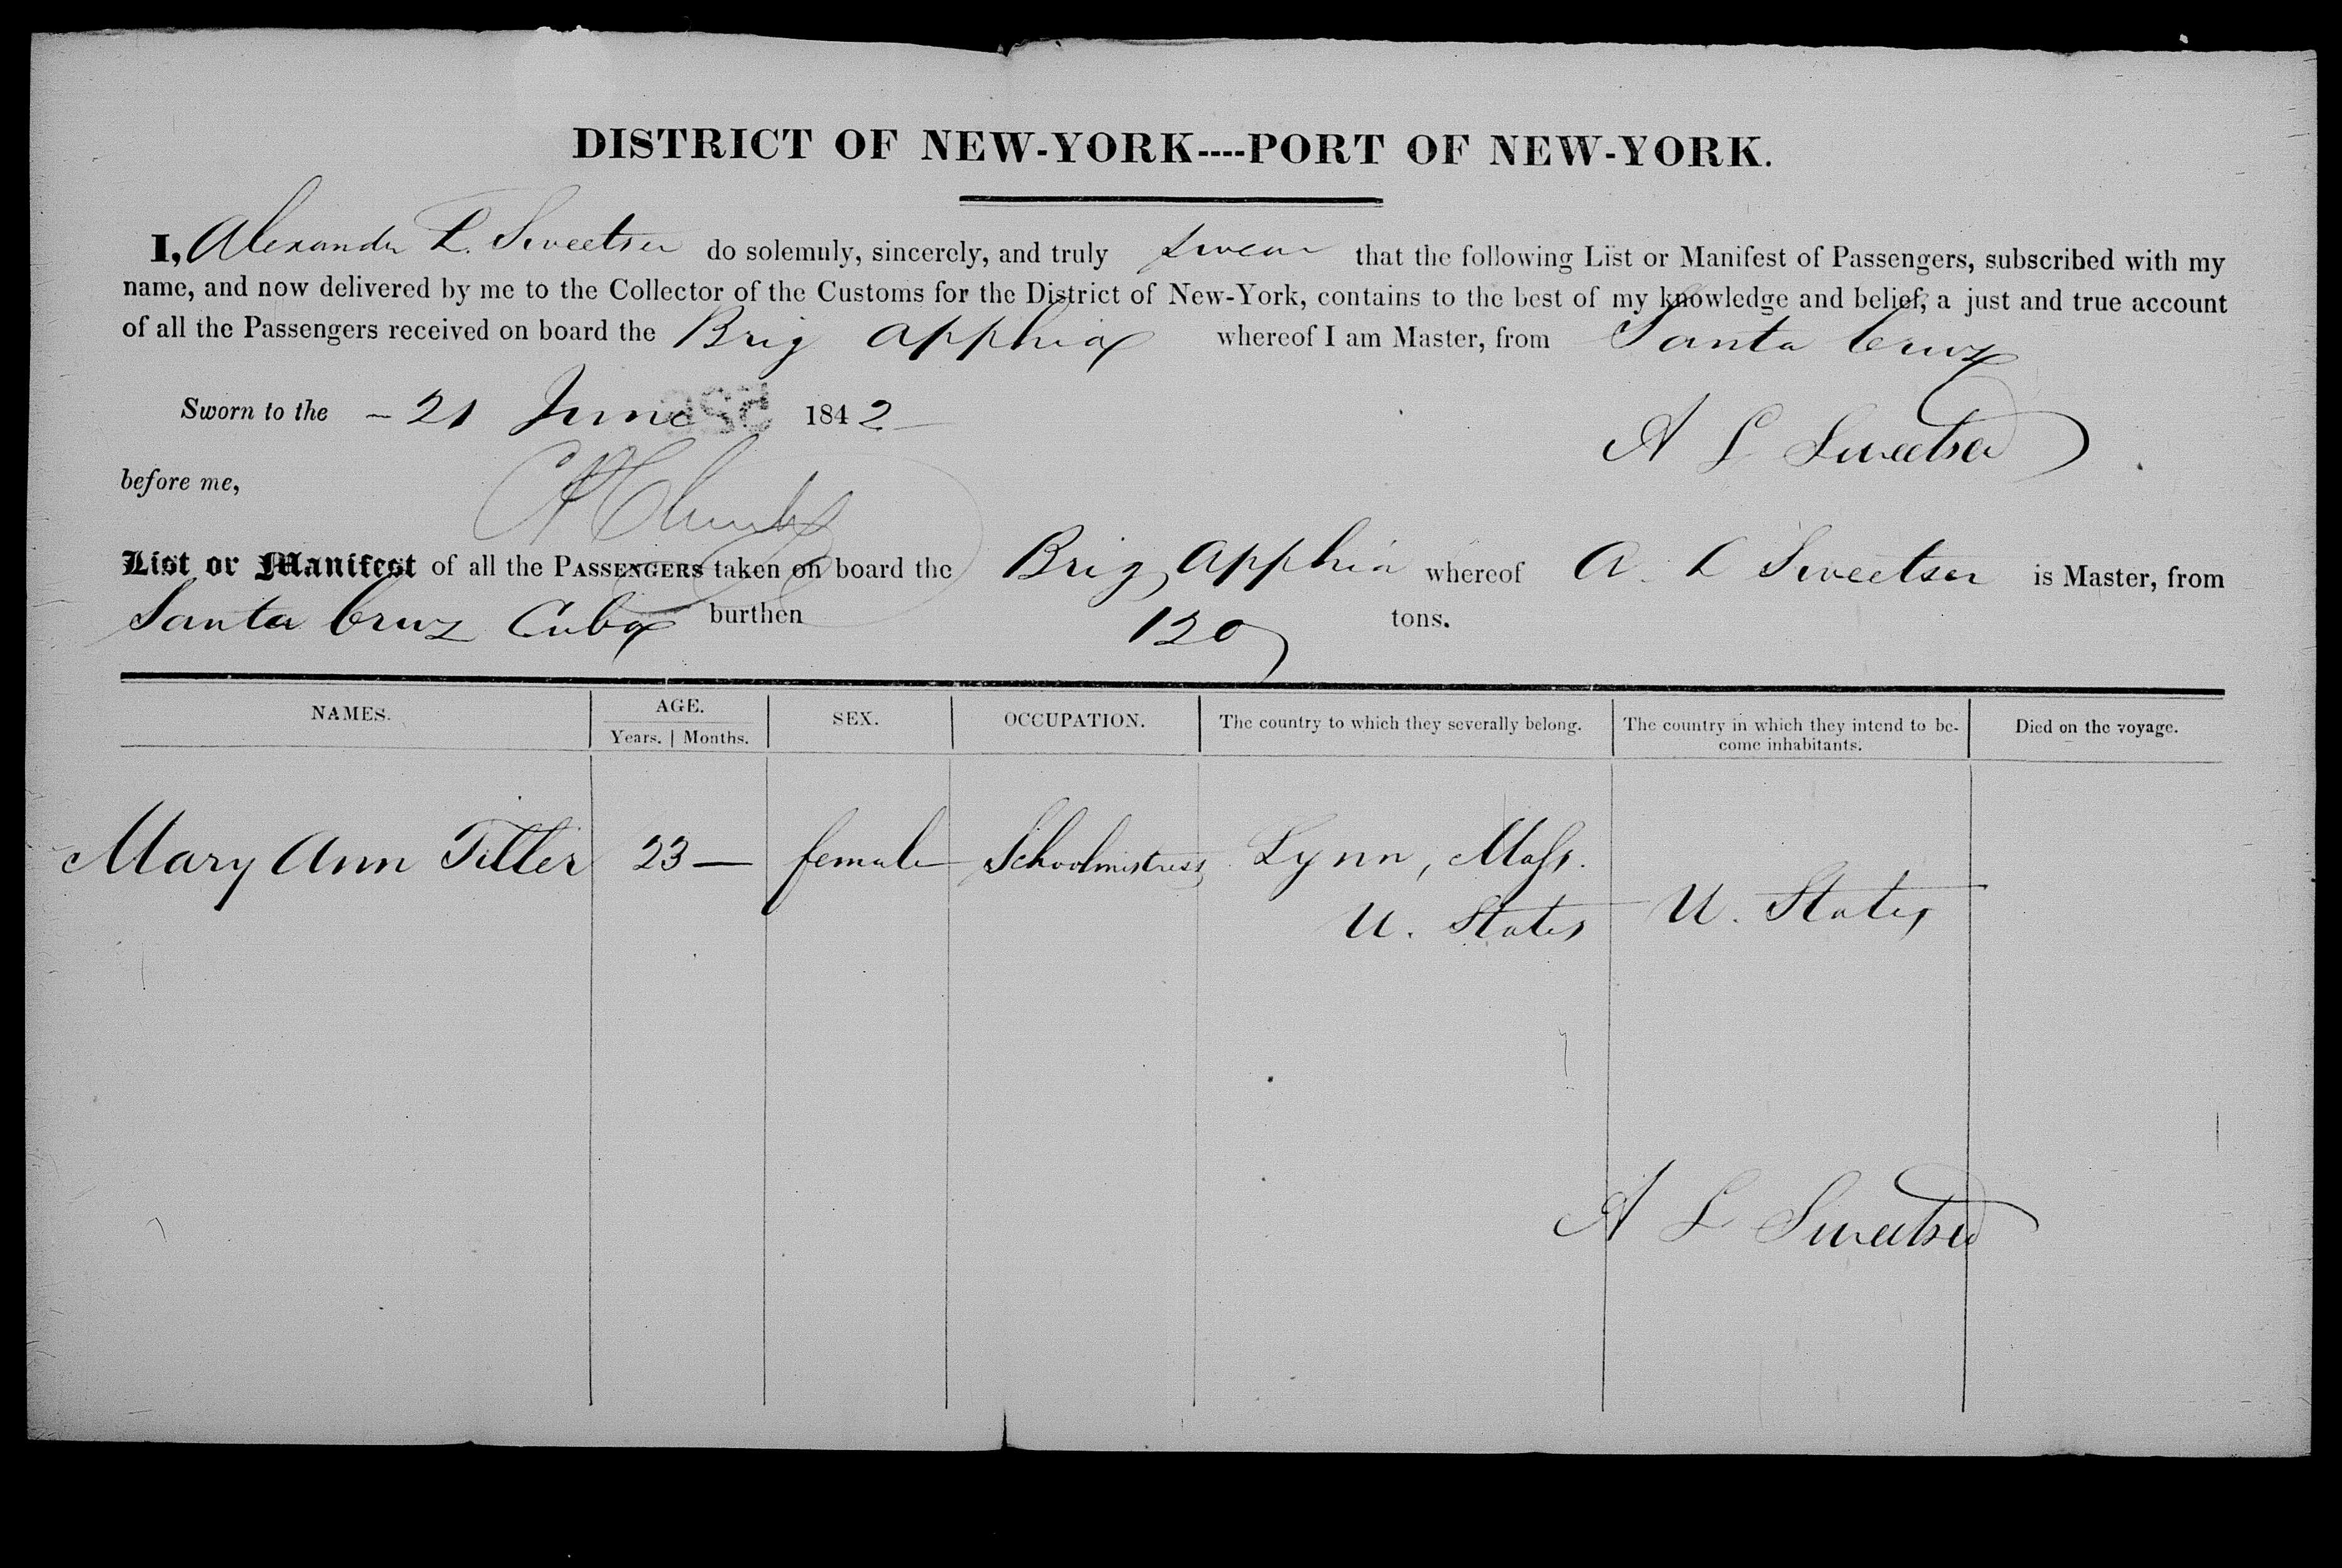 DISTRICT OF NEW-YORK----PORT OF NEW-YORK.
I, Alexander L. Sweetser do solemnly, sincerely, and truly swear that the following List or Manifest of Passengers, subscribed with my
name, and now delivered by me to the Collector of the Customs for the District of New-York, contains to the best of my knowledge and belief, a just and true account
of all the Passengers received on board the Brig Apphia whereof I am Master, from Santa Cruz
Sworn to the - 21 June 1842
A L Sweetser
before me,
List or Manifest of all the PASSENGERS taken on board the Brig Apphia whereof A. L Sweetser is Master, from
Santa Cruz Cuba burthen 120 tons.
NAMES. AGE. SEX. OCCUPATION. The country to which they severally belong. The country in which they intend to be- Died on the voyage.
Years. | Months. come inhabitants.
Mary Ann Tiller 23 — female Schoolmistress Lynn, Mass.
U. States U. States
A L Sweetser